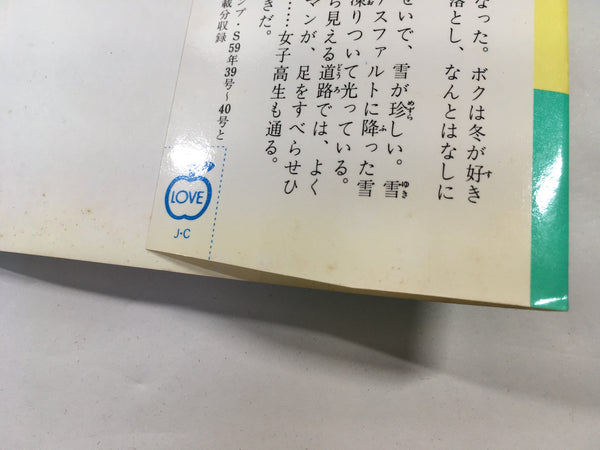 なった。ボクは冬が好き
落とし、なんとはなしに
せいで、雪が珍しい。雪
アスファルトに降った雪
凍りついて光っている。
ら見える道路では、よく
マンが、足をすべらせひ
……女子高生も通る。
きだ。
ンプ・S59年39号〜40号と
載分収録
LOVE
J・C